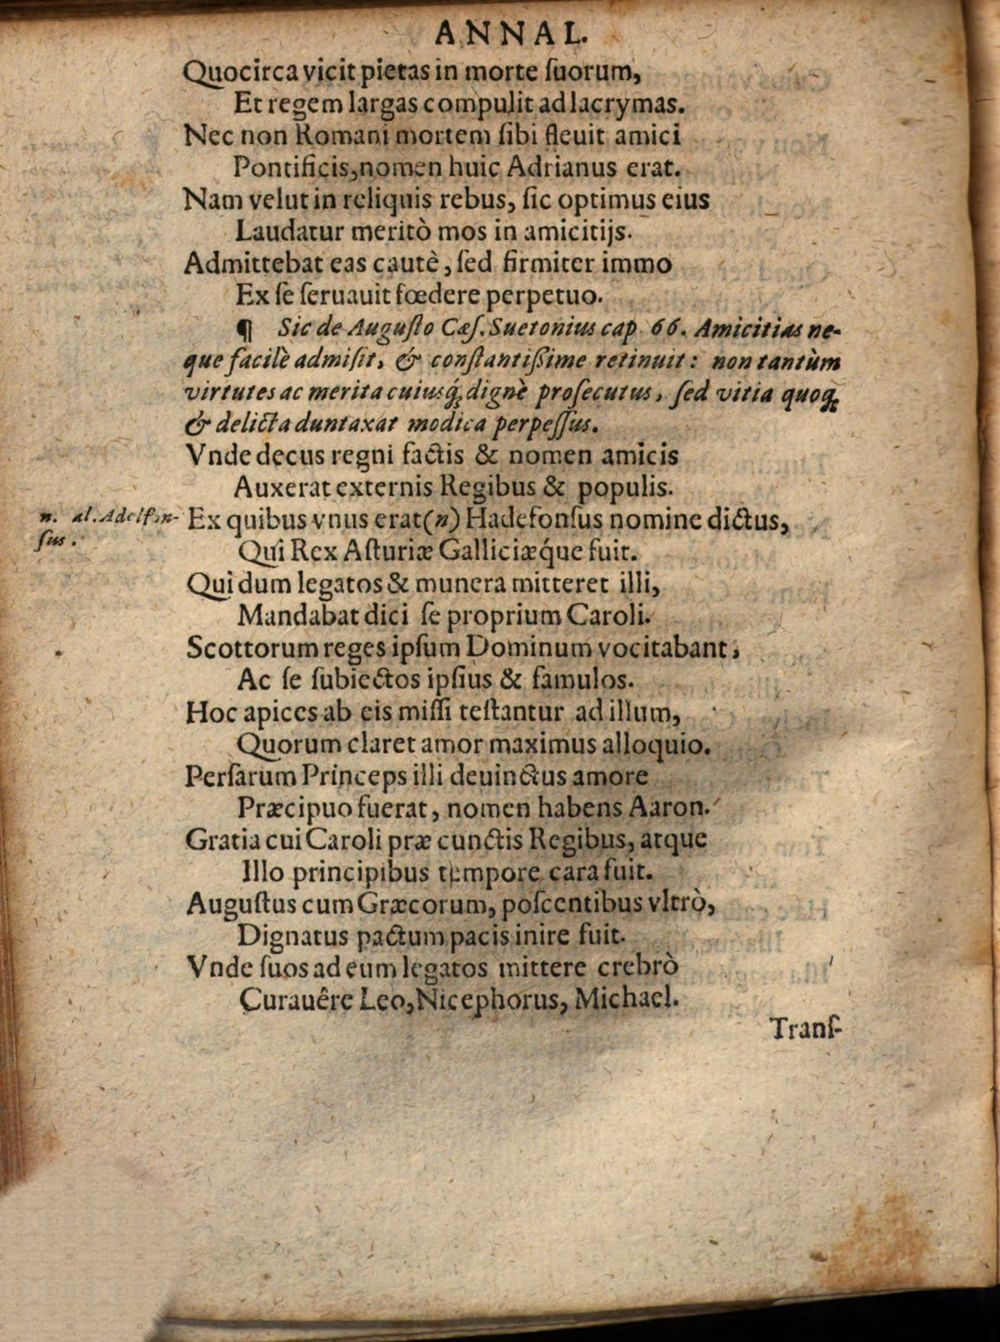 ANNAL.
Quocirca vicit pietas in morte ſuorum,
Et regem largas compulit ad lacrymas.
Nec non Romani mortem ſibi fleuit amici
Pontificis, nomen huic Adrianus erat.
Nam velut in reliquis rebus, ſic optimus eius
Laudatur meritò mos in amicitijs.
Admittebat eas cautè, ſed firmiter immo
Ex ſe ſeruauit fœdere perpetuo.
¶ Sic de Auguſto Cæſ. Suetonius cap 66. Amicitias ne-
que facilè admiſit, & conſtantiſſime retinuit: non tantùm
virtutes ac merita cuiusq́; dignè proſecutus, ſed vitia quoq;
& delicta duntaxat modica perpeſſus.
Vnde decus regni factis & nomen amicis
Auxerat externis Regibus & populis.
n. al. Adelfon-
ſus.
Ex quibus vnus erat (n) Hadefonſus nomine dictus,
Qui Rex Aſturiæ Galliciæq́ue fuit.
Qui dum legatos & munera mitteret illi,
Mandabat dici ſe proprium Caroli.
Scottorum reges ipſum Dominum vocitabant,
Ac ſe ſubiectos ipſius & famulos.
Hoc apices ab eis miſſi teſtantur ad illum,
Quorum claret amor maximus alloquio.
Perſarum Princeps illi deuinctus amore
Præcipuo fuerat, nomen habens Aaron.
Gratia cui Caroli præ cunctis Regibus, atque
Illo principibus tempore cara fuit.
Auguſtus cum Græcorum, poſcentibus vltrò,
Dignatus pactum pacis inire fuit.
Vnde ſuos ad eum legatos mittere crebrò
Curauêre Leo, Nicephorus, Michael.
Tranſ-